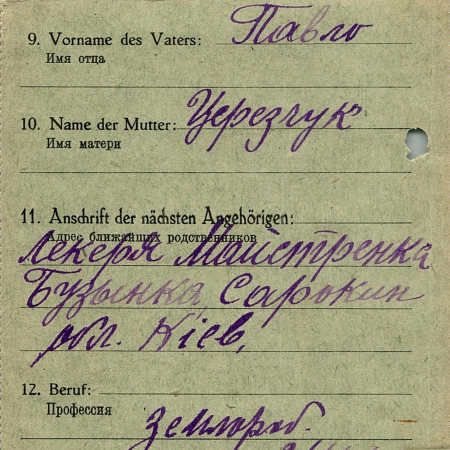 9. Vorname des Vaters: Павло
Имя отца
10. Name der Mutter: Церезчук
Имя матери
11. Anschrift der nächsten Angehörigen:
Адрес ближайших родственников
лекеря Майстренка
Бузынка Сарокин
обл. Кіев,
12. Beruf:
Профессия
Землероб.